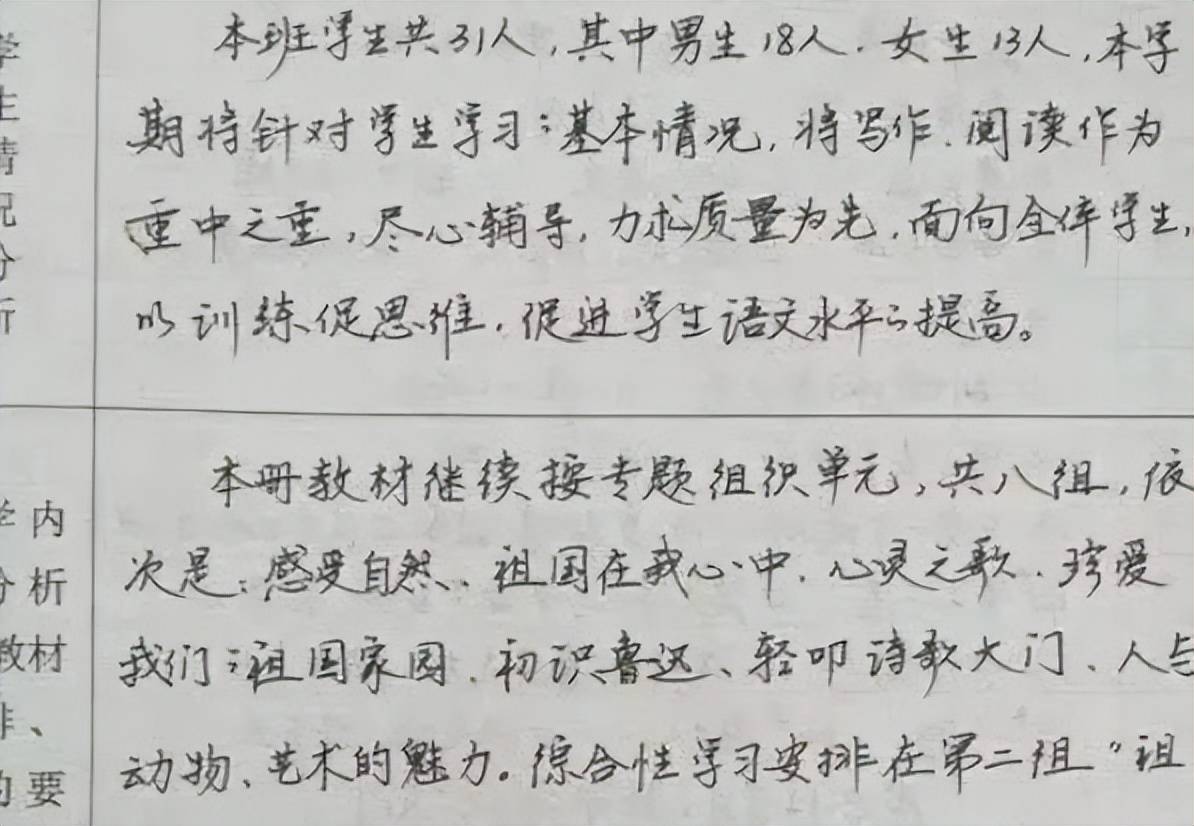 学
生
情
况
分
析
本班学生共31人,其中男生18人.女生13人,本学
期将针对学生学习的基本情况,将写作.阅读作为
重中之重,尽心辅导,力求质量为先,面向全体学生,
以训练促思维,促进学生语文水平的提高。
学内
分析
教材
排、
的要
本册教材继续按专题组织单元,共八组,依
次是:感受自然、祖国在我心中、心灵之歌、珍爱
我们的祖国家园、初识鲁迅、轻叩诗歌大门、人与
动物、艺术的魅力。综合性学习安排在第二组"祖